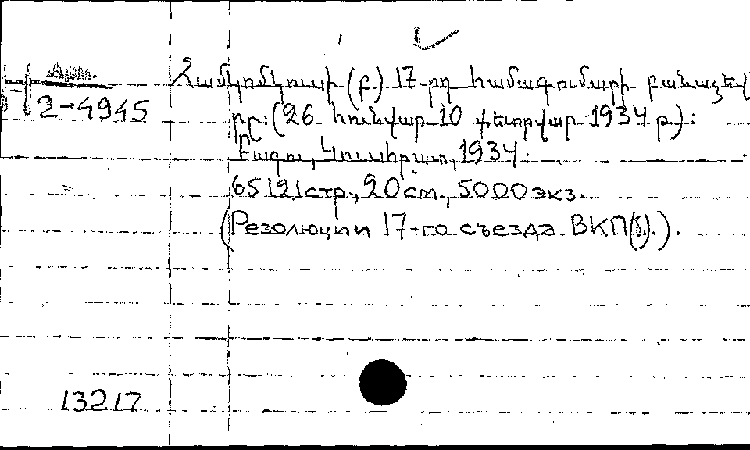 Համկոմկուսի (բ.) 17-րդ համագումարի բանաձեվ
2-4945
րը: (26 հունվար-10 փետրվար 1934 թ.):
Բագու, Կուսհրատ, 1934.
65 [2] стр., 20 см., 5000 экз.
(Резолюции 17-го съезда ВКП(б).).
13217